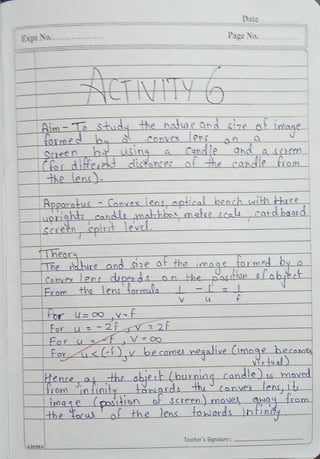 Date
Expt No.
Page No.
ACTIVITY 6
Aim - To study the nature and size of image
formed by a convex lens on a
screen by using a candle and a screen
(for different distances of the candle from
the lens).
Apparatus - Convex lens, optical bench with three
uprights, candle, matchbox, metre scale, cardboard
screen, spirit level.
Theory
The nature and size of the image formed by a
convex lens depends on the position of object
From the lens formula 1/v - 1/u = 1/f
For u = ∞, v = F
For u = -2f, v = 2F
For u = -f, v = ∞
For u < (-f), v becomes negative (image becomes
virtual)
Hence, as the object (burning candle) is moved
from infinity towards the convex lens, its
image (position of screen) moves away from
the focus of the lens towards infinity.
Teacher's Signature :